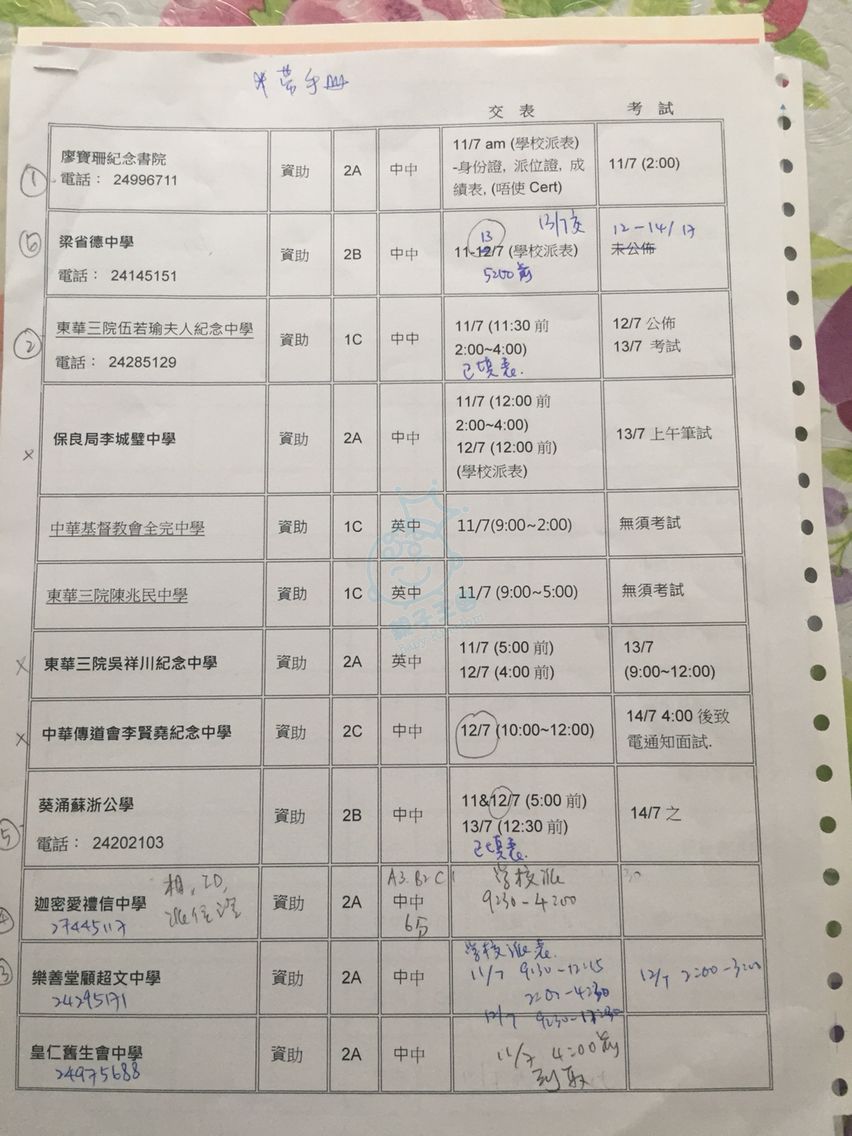 * 帶手冊
交表 考試
① 廖寶珊紀念書院
電話： 24996711
資助 2A 中中
11/7 am (學校派表)
-身份證, 派位證, 成
績表, (唔使 Cert)
11/7 (2:00)
⑥ 梁省德中學
電話： 24145151
資助 2B 中中
13/7交
13
11-12/7 (學校派表)
5:00前
12-14/7
未公佈
② 東華三院伍若瑜夫人紀念中學
電話： 24285129
資助 1C 中中
11/7 (11:30 前
2:00~4:00)
已填表.
12/7 公佈
13/7 考試
x 保良局李城璧中學
資助 2A 中中
11/7 (12:00 前
2:00~4:00)
12/7 (12:00 前)
(學校派表)
13/7 上午筆試
中華基督教會全完中學
資助 1C 英中
11/7(9:00~2:00)
無須考試
東華三院陳兆民中學
資助 1C 英中
11/7 (9:00~5:00)
無須考試
x 東華三院吳祥川紀念中學
資助 2A 英中
11/7 (5:00 前)
12/7 (4:00 前)
13/7
(9:00~12:00)
x 中華傳道會李賢堯紀念中學
資助 2C 中中
12/7 (10:00~12:00)
14/7 4:00 後致
電通知面試.
⑤ 葵涌蘇浙公學
電話： 24202103
資助 2B 中中
11&12/7 (5:00 前)
13/7 (12:30 前)
已填表.
14/7 之
④ 迦密愛禮信中學
相, ID,
派位證
資助 2A
A3. B2 C1
中中
6分
學校派
9:30-4:00
③ 樂善堂顧超文中學
24295171
資助 2A 中中
學校派表.
11/7 9:30-12:15
2:00-4:30
12/7
12/7 2:00-3:00
皇仁舊生會中學
24975688
資助 2A 中中
11/7 4:00前
到取
親子王國